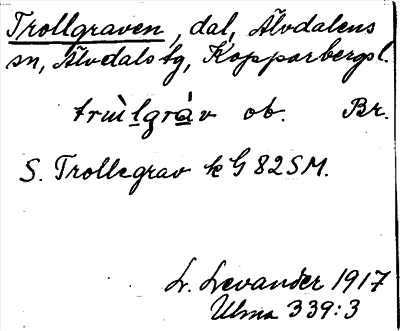 Trollgraven, dal, Älvdalens
sn, Älvdals tg, Kopparbergs l.
trùlgràv ob. Br.
S. Trollegrav k G 82SM.
L. Levander 1917
Ulma 339:3